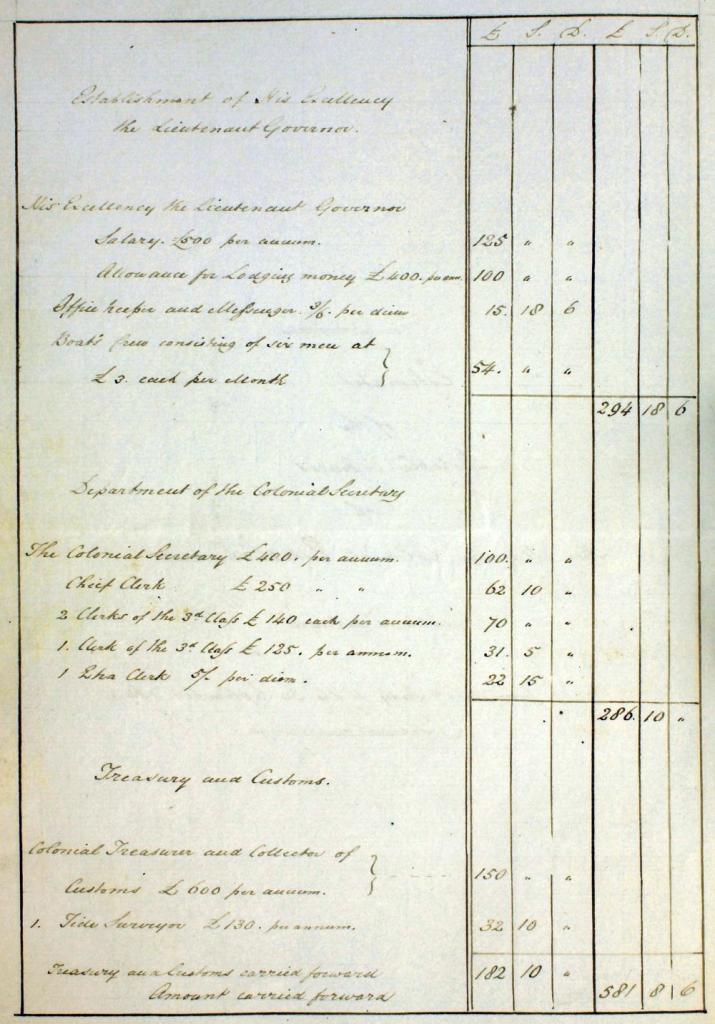 £ S. D. £ S. D.
Establishment of His Excellency
the Lieutenant Governor.
His Excellency the Lieutenant Governor
Salary. £500 per annum. 125 " "
Allowance for Lodging money £400. per ann. 100 " "
Office keeper and Messenger. 3/6. per diem 15. 18 6
Boat's Crew consisting of six men at
£3. each per Month 54. " "
294 18 6
Department of the Colonial Secretary
The Colonial Secretary £400. per annum. 100. " "
Chief Clerk £250 " " 62 10 "
2 Clerks of the 3d Class £140 each per annum. 70 " "
1. Clerk of the 3d Class £125. per annum. 31. 5 "
1 Extra Clerk 5/. per diem. 22 15 "
286. 10 "
Treasury and Customs.
Colonial Treasurer and Collector of
Customs £600 per annum. 150 " "
1. Tide Surveyor £130. per annum. 32 10 "
Treasury and Customs carried forward 182 10 "
Amount carried forward 581 8 6